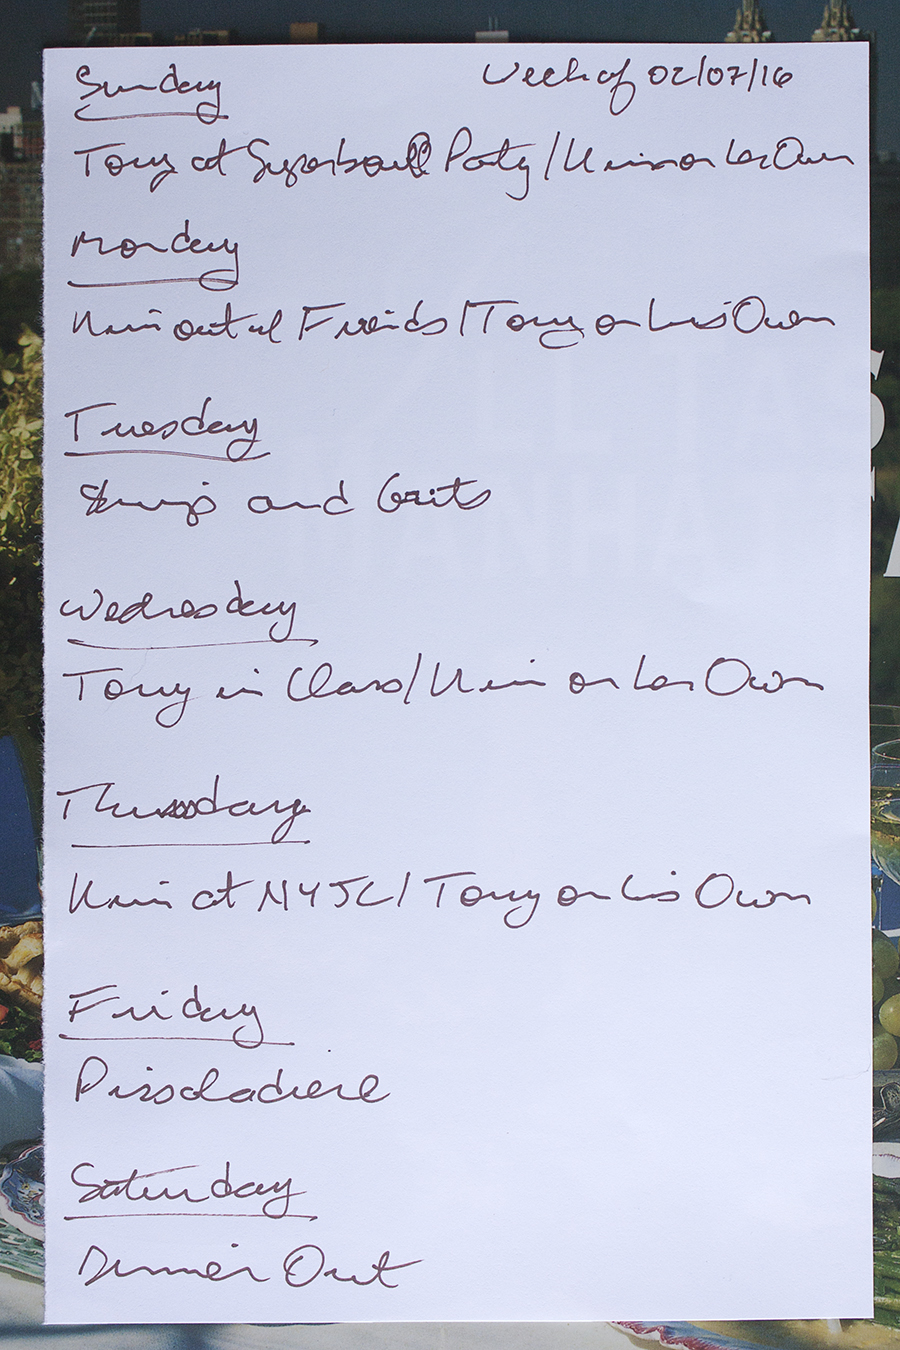 Sunday Week of 02/07/16
Tony at Superbowl Party / Kim on her Own
Monday
Kim out w/ Friends / Tony on his Own
Tuesday
Shrimp and Grits
Wednesday
Tony in Class / Kim on her Own
Thursday
Kim at NYJL / Tony on his Own
Friday
Pissaladiere
Saturday
Dinner Out